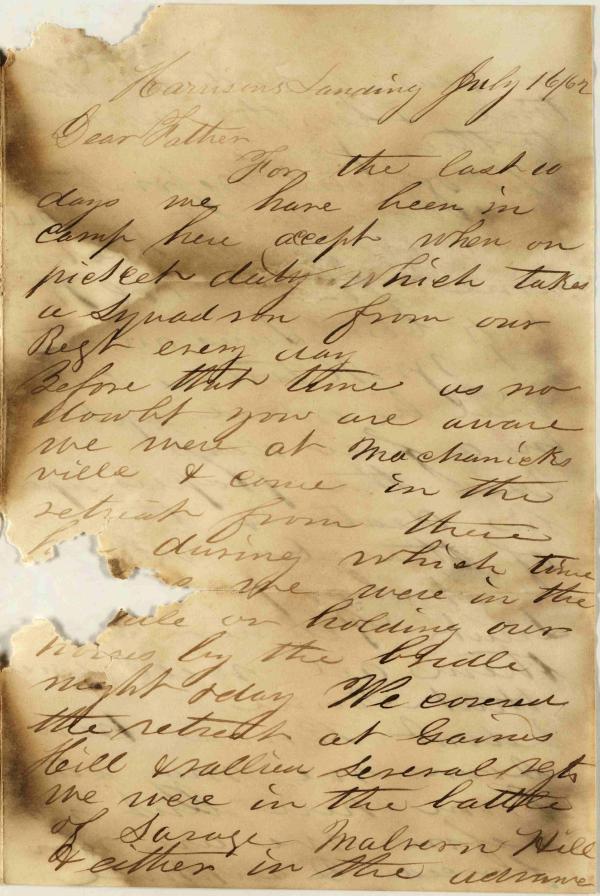 Harrisons Landing July 16/62
Dear Father
For the last 10
days we have been in
camp here accept when on
picket duty which takes
a squadron from our
Regt every day
Before that time as no
dowbt you are aware
we were at Machanicks
ville & come in the
retreat from there
during which time
we were in the
or holding our
horses by the bridle
night & day We covered
the retreat at Gaines
Hill & rallied several regts
we were in the battle
of Savage Malvern Hill
& either in the advance